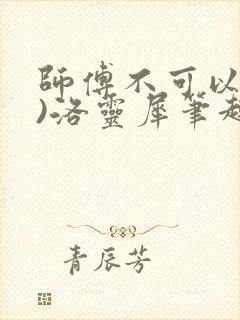 師傅不可以
)洛靈犀筆趣
青辰芳